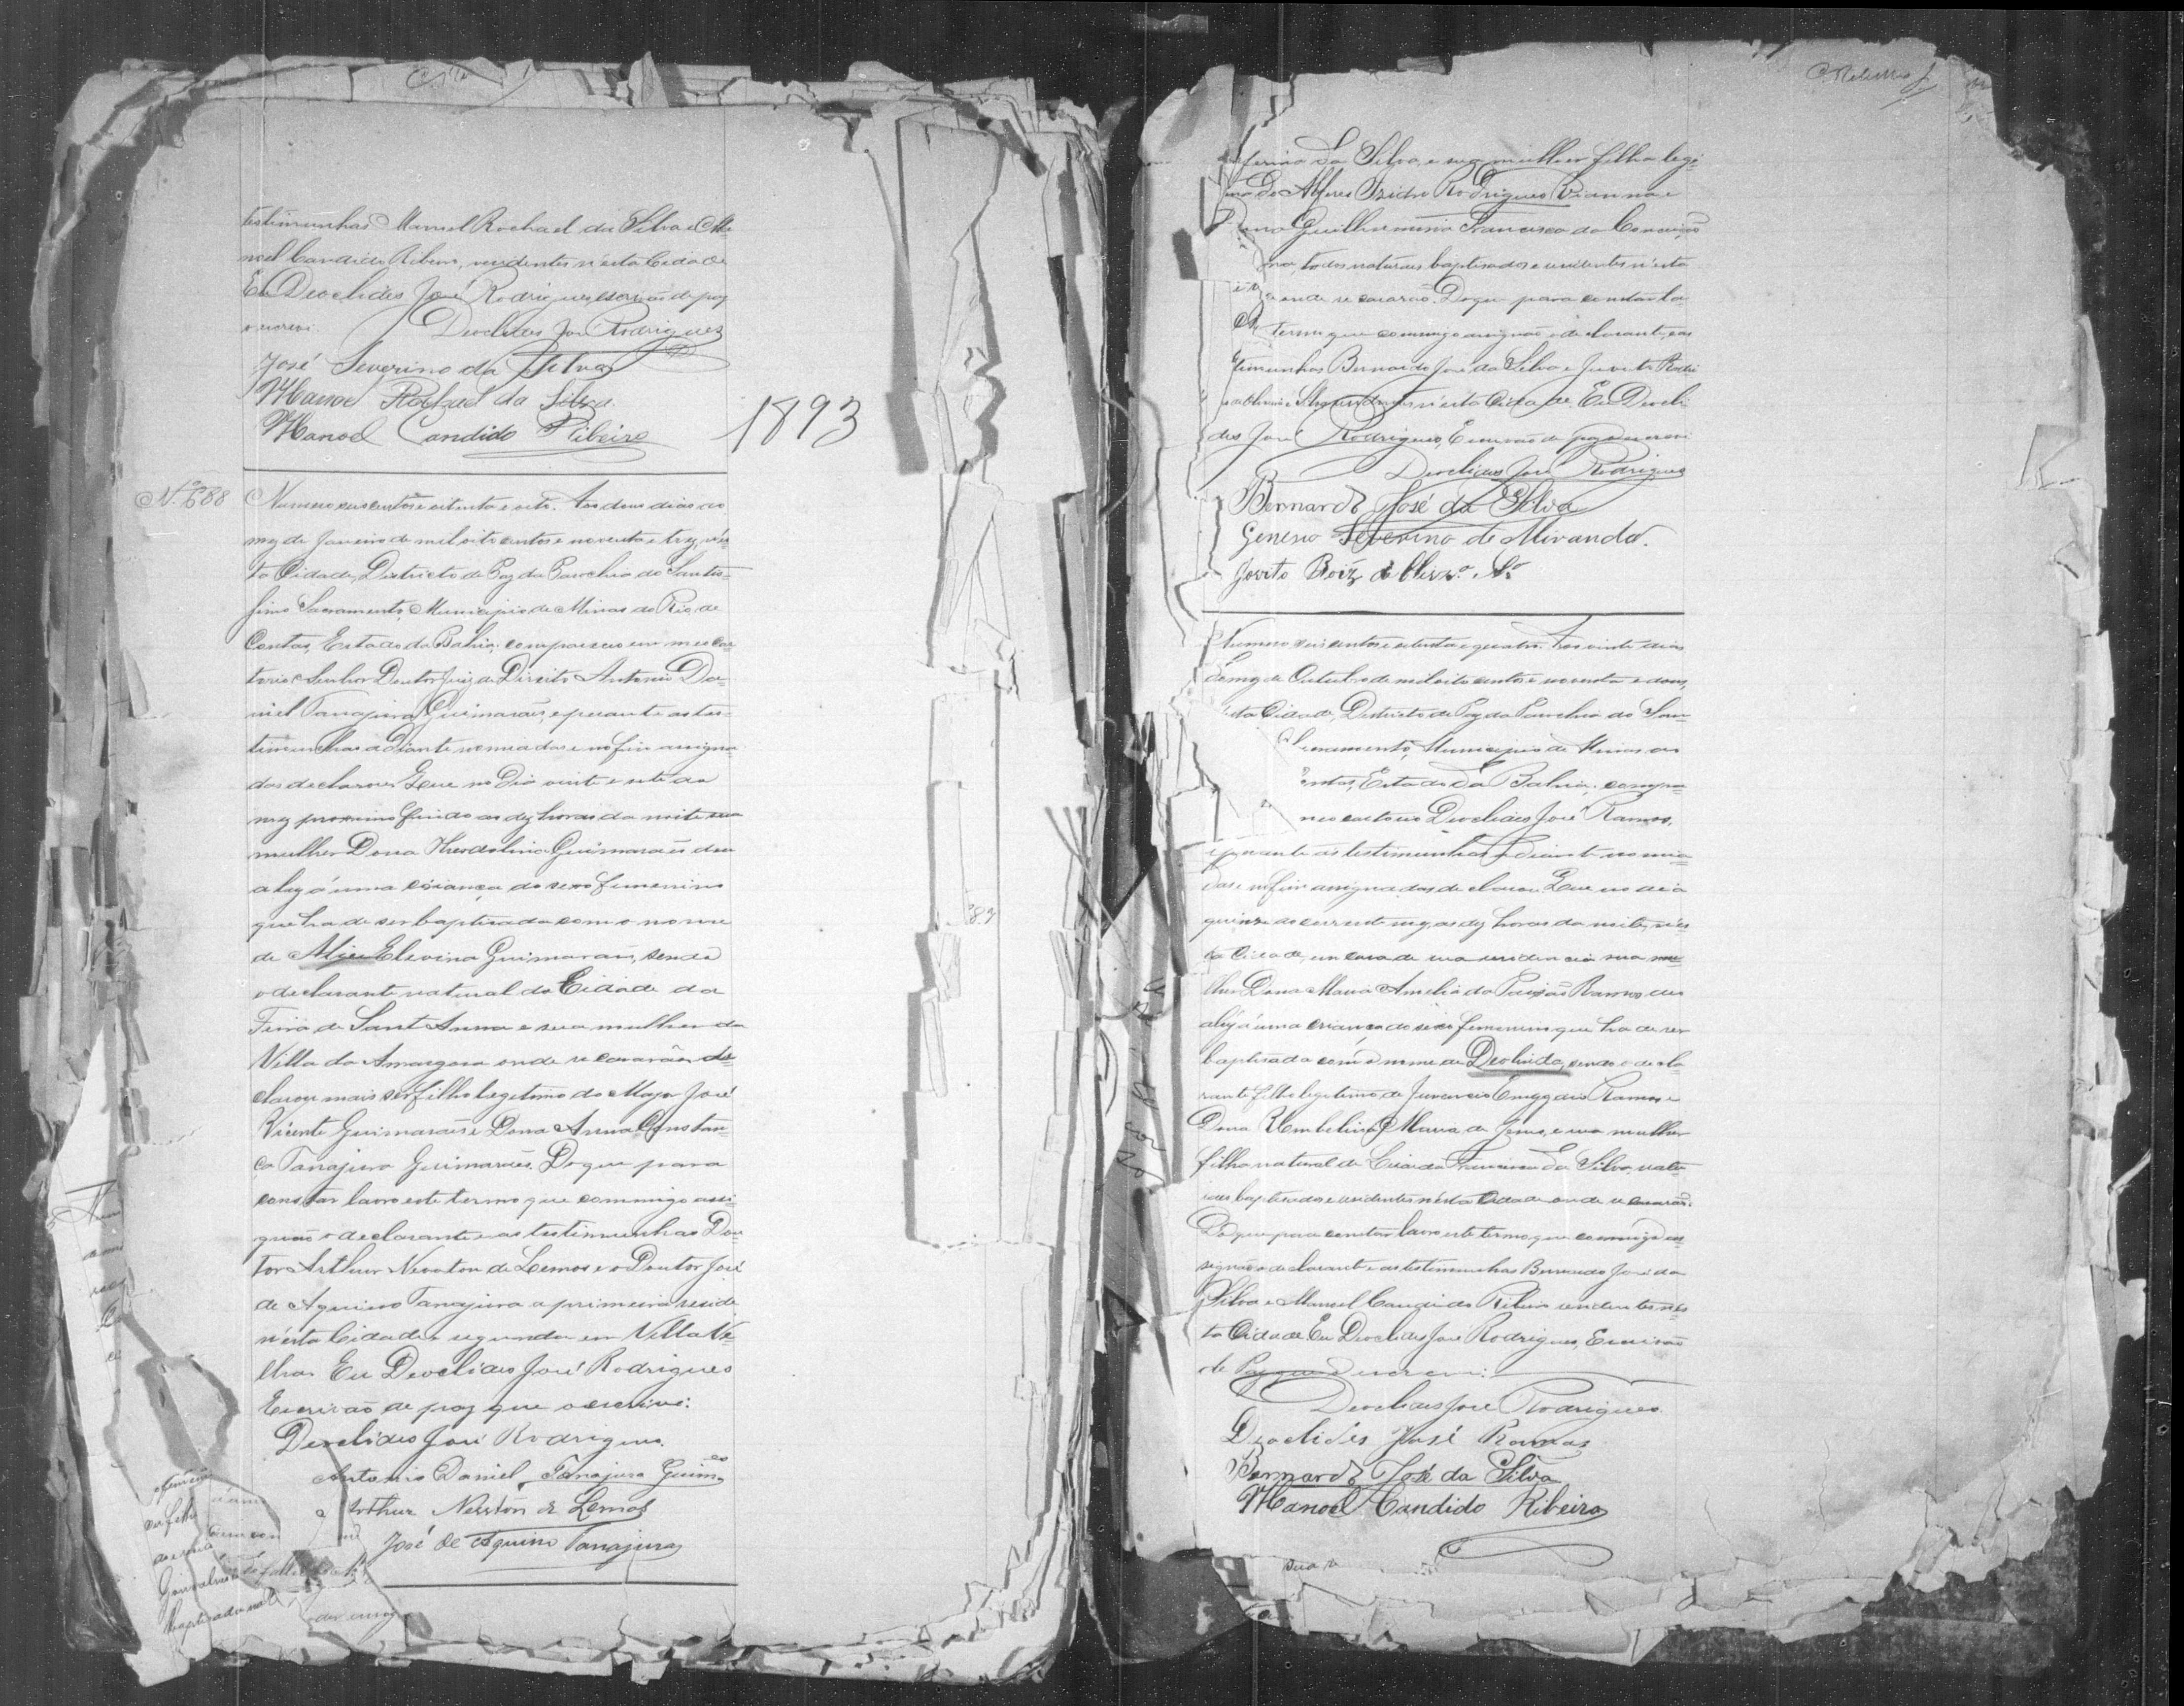 testimunhas Manoel Rochael da Silva e Ma
noel Candido Ribeiro, residentes n'esta Cidade
Eu Deoclides José Rodrigues, escrivão de paz
o escrevi. Deoclides José Rodrigues
José Severino da Silva
Manoel Rochael da Silva.
Manoel Candido Ribeiro
1893
N. 688
Numero seis centos e oitenta e oito. Aos dous dias do
mez de Janeiro de mil oito centos e noventa e trez, n'es
ta Cidade, Districto de Paz da Parochia do Santis-
simo Sacramento, Municipio de Minas do Rio de
Contas, Estado da Bahia, compareceu em meo car
torio o Senhor Doutor Juiz de Direito Antonio Da-
niel Tanajura Guimarães, e perante as tes-
timunhas adiante nomeadas e no fim assigna-
das declarou: Que no dia vinte e sete do
mez proximo findo as dez horas da noite sua
mulher Dona Guimarães deu
a luz á uma criança do sexo femenino
que ha de ser baptisada com o nome
de Elevina Guimarães, sendo
o declarante natural da Cidade da
Feira de Sant Anna e sua mulher da
Villa da Amargosa onde se casarão, de-
clarou mais ser filho legitimo do Major José
Vicente Guimarães e Dona Anna Constan-
ça Tanajura Guimarães. Do que para
constar lavro este termo que commigo assi-
gnão o declarante e as testimunhas Dou
tor Arthur Newton de Lemos e o Doutor José
de Aquino Tanajura o primeiro reside
n'esta Cidade o segundo em Villa Ve
lha. Eu Deoclides José Rodrigues
Escrivão de paz que o escrevi:
Deoclides José Rodrigues.
Antonio Daniel Tanajura Guim.es
Arthur Newton de Lemos
José de Aquino Tanajura
baptisada
ferino da Silva, e sua mulher filha legi-
do Alferes Isidro Rodrigues Vianna e
Guilhermina Francisca da Conceição
todos naturaes baptisados e residentes n'esta
onde se casarão. Do que para constar la-
termo que commigo assignão o declarante, e as
timunhas Bernardo José da Silva e Jovito Rodri
n'esta Cidade. Eu Deocli
des José Rodrigues, Escrivão de paz o escrevi
Deoclides José Rodrigues
Bernardo José da Silva
Genesio Severino de Miranda.
Jovito Roiz
Numero seis centos e oitenta e quatro. Aos vinte dias
do mez de Outubro de mil oito centos e noventa e dous,
n'esta Cidade, Districto de Paz da Parochia do San
cramento, Municipio de Minas do
Contas, Estado da Bahia, compa-
meo cartorio Deoclides José Ramos,
e perante as testimunhas adiante nomea-
das e no fim assignadas declarou: Que no dia
quinze do corrente mez, as dez horas da noite, n'es
ta Cidade, em casa de sua residencia sua mu
lher Dona Maria Amelia da Paixão Ramos deu
a luz á uma criança do sexo femenino que ha de ser
baptisada com o nome de Deolinda, sendo o decla-
rante filho legitimo de Juvencio Ramos e
Dona Umbelina Maria de Jesus, e sua mulher
filha natural de Francisca da Silva, natu
raes baptisados e residentes n'esta Cidade onde se casarão.
Do que para constar lavro este termo que commigo as-
signão o declarante e as testimunhas Bernardo José da
Silva e Manoel Candido Ribeiro residentes n'es
ta Cidade. Eu Deoclides José Rodrigues, Escrivão
de Paz que o escrevi:
Deoclides José Rodrigues.
Deoclides José Ramos
Bernardo José da Silva
Manoel Candido Ribeiro